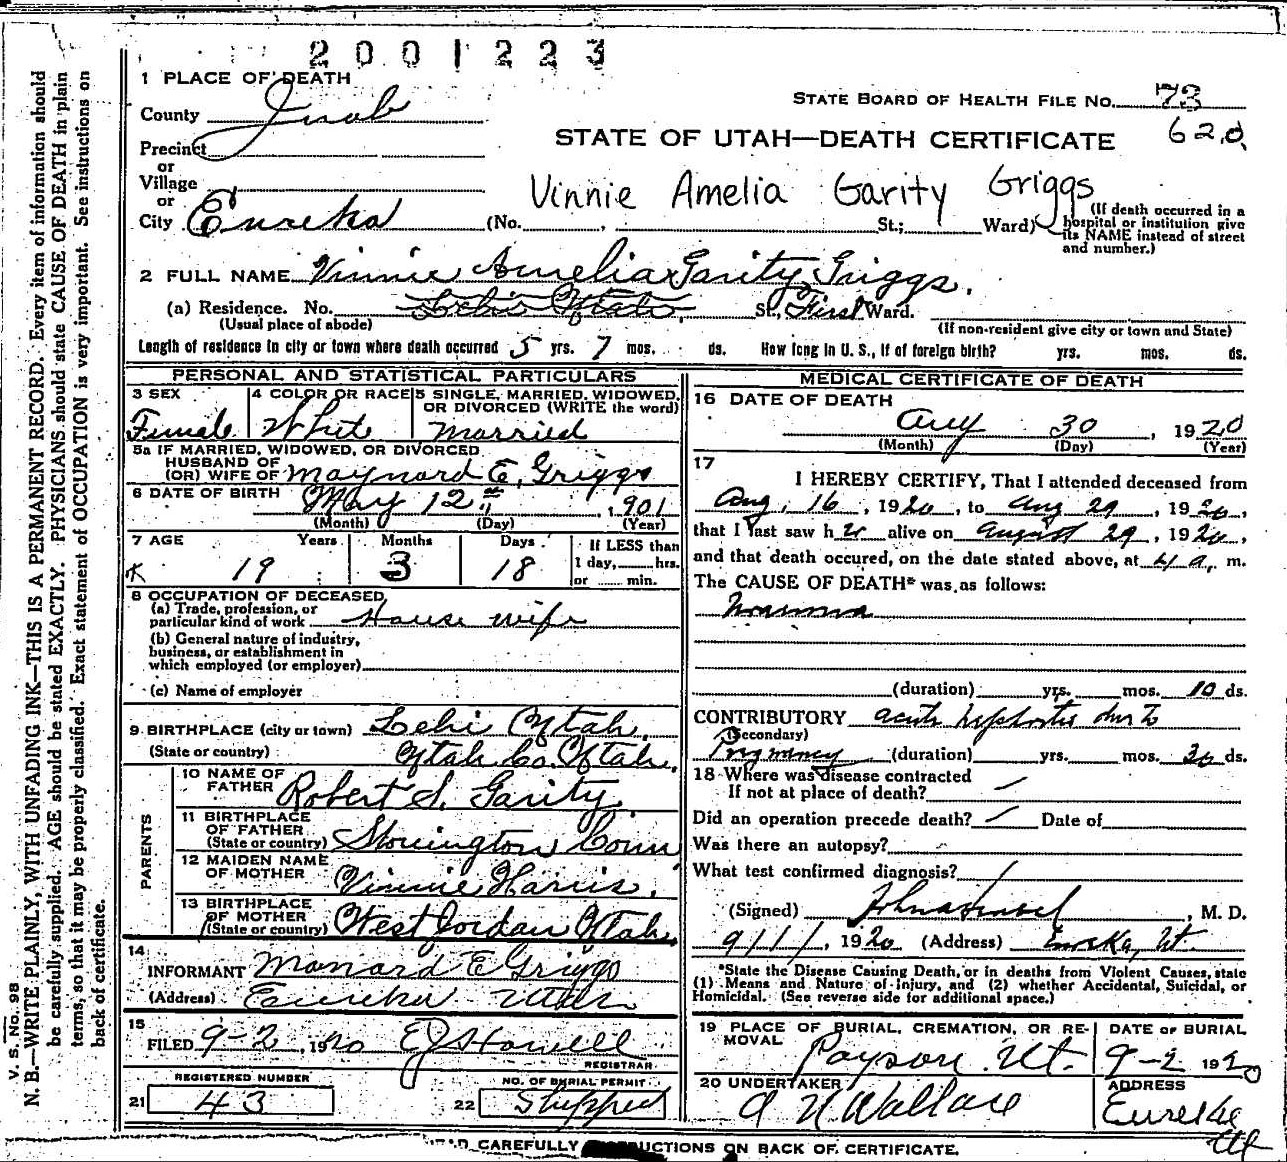 2001223
1 PLACE OF DEATH
County Juab
STATE BOARD OF HEALTH FILE No. 73
620
Precinct
or
Village
or
City Eureka
STATE OF UTAH—DEATH CERTIFICATE
Vinnie Amelia Garity Griggs
(No. , St.; Ward)
(If death occurred in a
hospital or institution give
its NAME instead of street
and number.)
2 FULL NAME Vinnie Amelia Garity Griggs.
(a) Residence. No. Lehi Utah, St., First Ward.
(Usual place of abode)
(If non-resident give city or town and State)
Length of residence in city or town where death occurred 5 yrs. 7 mos. ds. How long in U. S., if of foreign birth? yrs. mos. ds.
PERSONAL AND STATISTICAL PARTICULARS
3 SEX
Female
4 COLOR OR RACE
White
5 SINGLE, MARRIED, WIDOWED,
OR DIVORCED (WRITE the word)
Married
5a IF MARRIED, WIDOWED, OR DIVORCED
HUSBAND OF
(OR) WIFE OF Maynard E. Griggs
6 DATE OF BIRTH May 12th, 1901
(Month) (Day) (Year)
7 AGE Years Months Days
19 3 18
If LESS than
1 day, hrs.
or min.
8 OCCUPATION OF DECEASED
(a) Trade, profession, or
particular kind of work House wife
(b) General nature of industry,
business, or establishment in
which employed (or employer)
(c) Name of employer
9 BIRTHPLACE (city or town) Lehi Utah.
(State or country) Utah Co. Utah.
PARENTS
10 NAME OF
FATHER Robert S. Garity
11 BIRTHPLACE
OF FATHER
(State or country) Stonington Conn
12 MAIDEN NAME
OF MOTHER Vinnie Harris.
13 BIRTHPLACE
OF MOTHER
(State or country) West Jordan Utah.
14
INFORMANT Manard E Griggs
(Address) Eureka Utah
15
FILED 9-2, 1920 EJ Howell
REGISTRAR
REGISTERED NUMBER
21 43
NO. OF BURIAL PERMIT
22 Shipped
MEDICAL CERTIFICATE OF DEATH
16 DATE OF DEATH
Aug 30, 1920
(Month) (Day) (Year)
17
I HEREBY CERTIFY, That I attended deceased from
Aug, 16, 1920, to Aug 29, 1920,
that I last saw her alive on August 29, 1920,
and that death occured, on the date stated above, at 4 a, m.
The CAUSE OF DEATH* was as follows:
(duration) yrs. mos. 10 ds.
CONTRIBUTORY acute nephritis due to
(Secondary)
Pregnancy (duration) yrs. mos. ds.
18 Where was disease contracted
If not at place of death?
Did an operation precede death? Date of
Was there an autopsy?
What test confirmed diagnosis?
(Signed) , M. D.
9/1/, 1920 (Address) Eureka, Ut.
*State the Disease Causing Death, or in deaths from Violent Causes, state
(1) Means and Nature of Injury, and (2) whether Accidental, Suicidal, or
Homicidal. (See reverse side for additional space.)
19 PLACE OF BURIAL, CREMATION, OR RE-
MOVAL
Payson Ut.
DATE OF BURIAL
9-2 1920
20 UNDERTAKER
Wallace
ADDRESS
Eureka
Ut
CAREFULLY INSTRUCTIONS ON BACK OF CERTIFICATE.
V. S. No. 98
N. B.—WRITE PLAINLY, WITH UNFADING INK—THIS IS A PERMANENT RECORD. Every item of information should
be carefully supplied. AGE should be stated EXACTLY. PHYSICIANS should state CAUSE OF DEATH in plain
terms, so that it may be properly classified. Exact statement of OCCUPATION is very important. See instructions on
back of certificate.